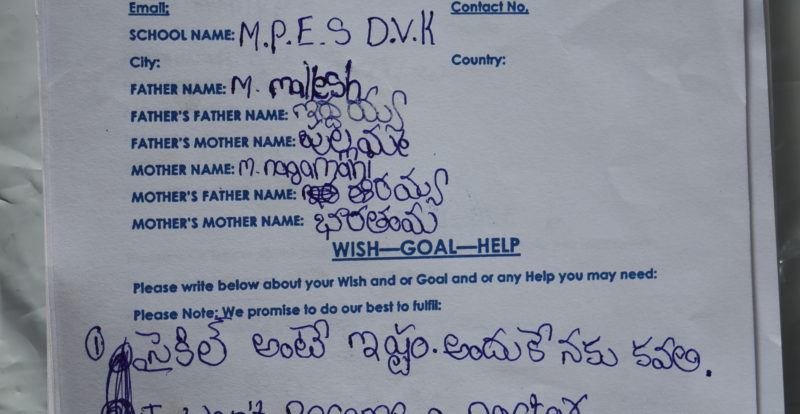 Email: Contact No.
SCHOOL NAME: M.P.E.S D.V.K
City: Country:
FATHER NAME: M. mallesh
FATHER'S FATHER NAME:
FATHER'S MOTHER NAME: పుల్లమ్మ
MOTHER NAME: M. nagamani
MOTHER'S FATHER NAME:
MOTHER'S MOTHER NAME: భారతమ్మ
WISH—GOAL—HELP
Please write below about your Wish and or Goal and or any Help you may need:
Please Note: We promise to do our best to fulfil:
① సైకిల్ అంటే ఇష్టం. అందుకే నకు కవలి.
I won't Become a Doctor